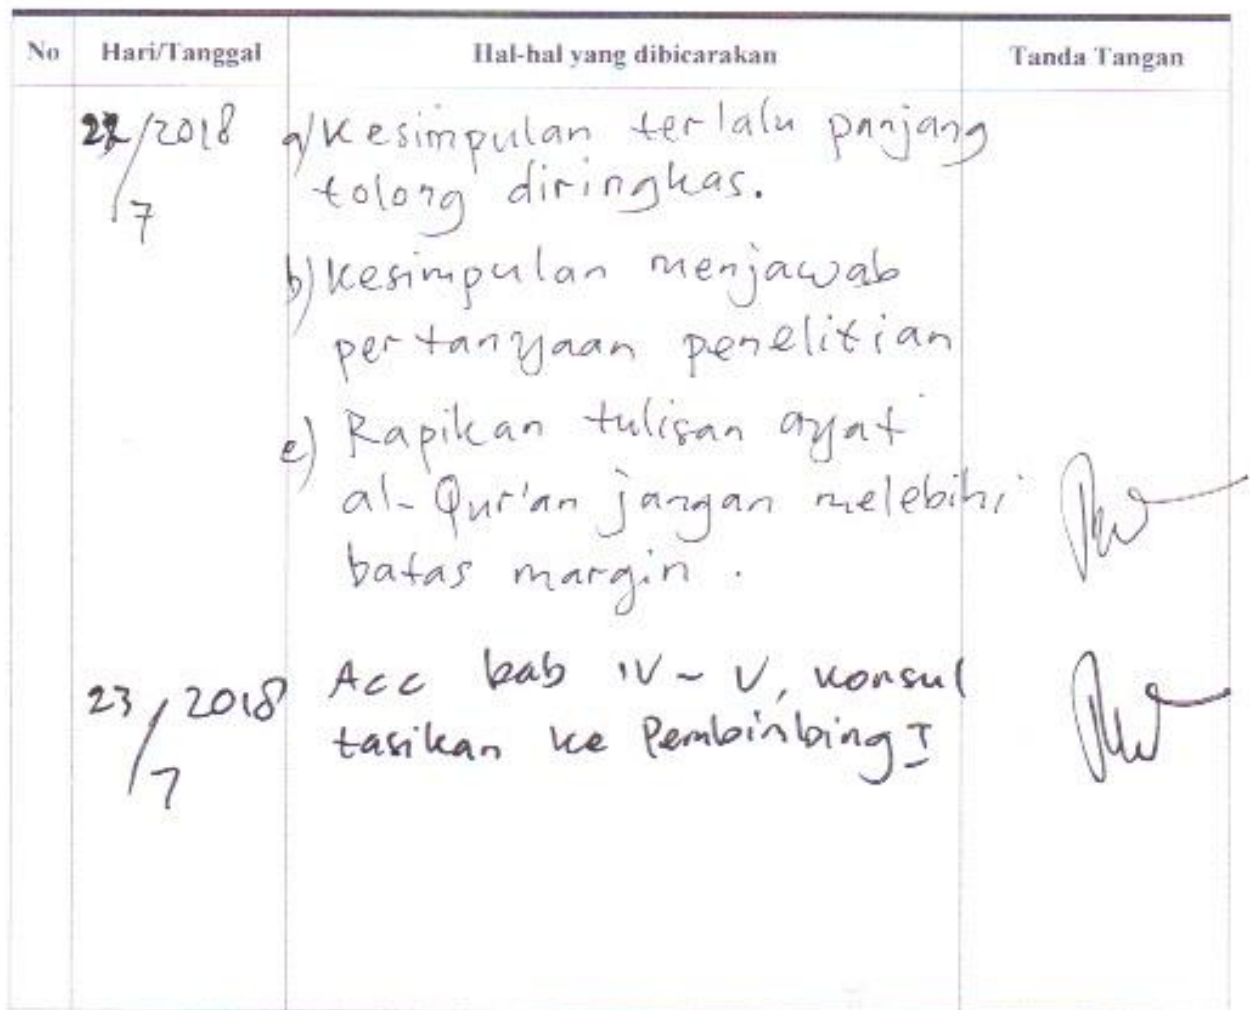 No Hari/Tanggal Hal-hal yang dibicarakan Tanda Tangan
22/2018 a) Kesimpulan terlalu panjang
/7 tolong diringkas.
b) Kesimpulan menjawab
pertanyaan penelitian
c) Rapikan tulisan ayat
al-Qur'an jangan melebihi
batas margin.
23/2018 Acc bab IV ~ V, konsul
/7 tasikan ke Pembinbing I